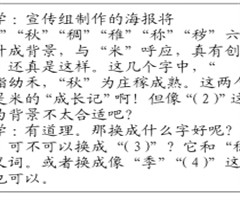 学：宣传组制作的海报将
”“秋”“稠”“稚”“称”“秽”六
计成背景，与“米”呼应，真有创
：还真是这样。这几个字中，“
指幼禾，“秋”为庄稼成熟。这两个
是米的“成长记”啊！但像“(2)”这
为背景不太合适吧？
学：有道理。那换成什么字好呢？
：可不可以换成“(3)”？它和“稚
义词。或者换成像“季”“(4)”这
也可以。